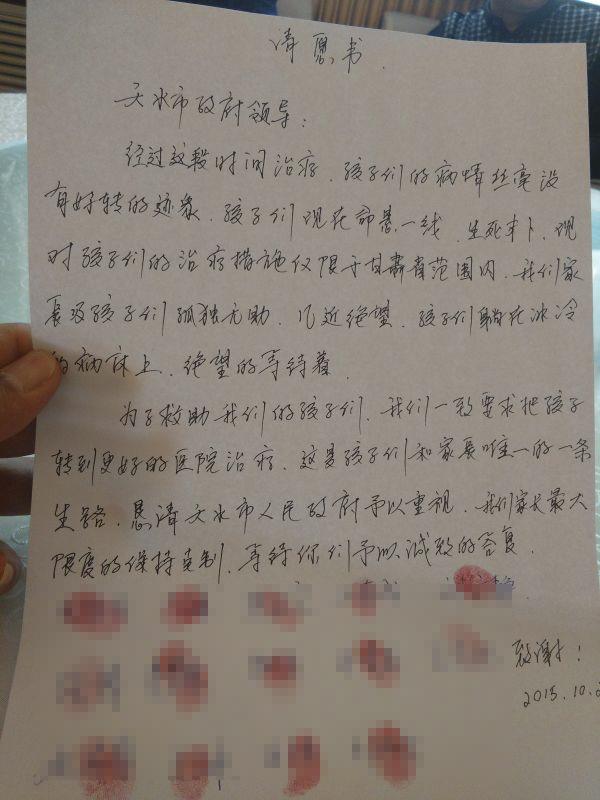 请愿书
天水市政府领导：
经过这段时间治疗，孩子们的病情丝毫没
有好转的迹象，孩子们现在命悬一线，生死未卜，现
时孩子们的治疗措施仅限于甘肃省范围内，我们家
长及孩子们孤独无助，几近绝望，孩子们躺在冰冷
的病床上，绝望的等待着
为了救助我们的孩子们，我们一致要求把孩子
转到更好的医院治疗，这是孩子们和家长唯一的一条
生路，恳请天水市人民政府予以重视，我们家长最大
限度的保持克制，等待你们予以诚致的答复
致谢！
2015.10.2